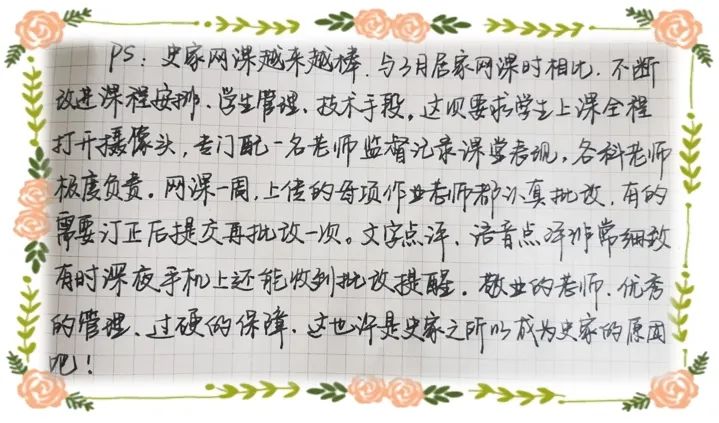 PS：史家网课越来越棒，与3月居家网课时相比，不断
改进课程安排、学生管理、技术手段。这次要求学生上课全程
打开摄像头，专门配一名老师监督记录课堂表现。各科老师
极度负责。网课一周，上传的每项作业老师都认真批改，有的
需要订正后提交再批改一次。文字点评、语音点评非常细致
有时深夜手机上还能收到批改提醒。敬业的老师、优秀
的管理、过硬的保障，这也许是史家之所以成为史家的原因
吧！